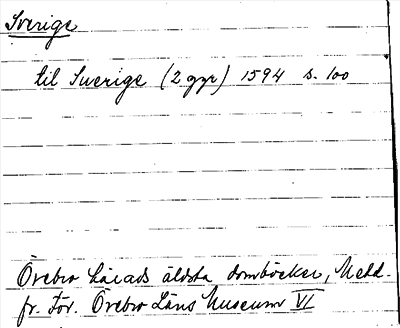 Sverige
til Suerige (2 ggr) 1594 s. 100
Örebro härads äldsta domböcker, Medd.
fr. För. Örebro Läns Museum VI